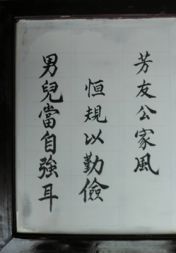 芳友公家風
恒規以勤儉
男兒當自強耳